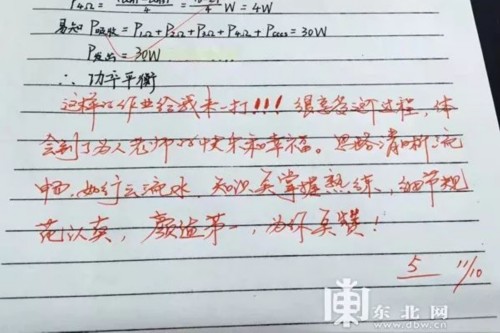 P4Ω= 4 = 4 W = 4W
易知 P吸收 = P1Ω+P2Ω+P3Ω+P4Ω+P = 30W
P发出 = 30W
∴ 功率平衡
这样的作业给我来一打!!! 很享受这个过程, 体
会到了为人老师的快乐和幸福。思路清晰流
畅, 如行云流水, 知识点掌握熟练, 细节规
范认真, 颜值第一, 为你点赞!
5 11/10
东北网
www.dbw.cn